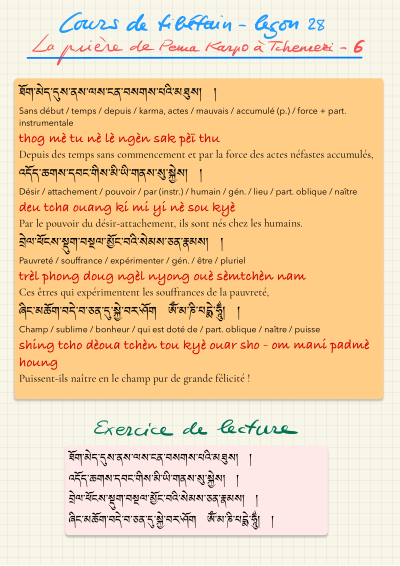 Cours de tibétain - leçon 28
La prière de Pema Karpo à Tchenrezi - 6
ཐོག་མེད་དུས་ནས་ལས་ངན་བསགས་པའི་མཐུས། །
Sans début / temps / depuis / karma, actes / mauvais / accumulé (p.) / force + part.
instrumentale
thog mè tu nè lè ngèn sak pèi thu
Depuis des temps sans commencement et par la force des actes néfastes accumulés,
འདོད་ཆགས་དབང་གིས་མི་ཡི་གནས་སུ་སྐྱེས། །
Désir / attachement / pouvoir / par (instr.) / humain / gén. / lieu / part. oblique / naître
deu tcha ouang ki mi yi nè sou kyè
Par le pouvoir du désir-attachement, ils sont nés chez les humains.
བྲེལ་ཕོངས་སྡུག་བསྔལ་མྱོང་བའི་སེམས་ཅན་རྣམས། །
Pauvreté / souffrance / expérimenter / gén. / être / pluriel
trèl phong doug ngèl nyong ouè sèmtchèn nam
Ces êtres qui expérimentent les souffrances de la pauvreté,
ཞིང་མཆོག་བདེ་བ་ཅན་དུ་སྐྱེ་བར་ཤོག ཨོཾ་མ་ཎི་པདྨེ་ཧཱུྃ། །
Champ / sublime / bonheur / qui est doté de / part. oblique / naître / puisse
shing tcho dèoua tchèn tou kyè ouar sho - om mani padmè
houng
Puissent-ils naître en le champ pur de grande félicité !
Exercice de lecture
ཐོག་མེད་དུས་ནས་ལས་ངན་བསགས་པའི་མཐུས། །
འདོད་ཆགས་དབང་གིས་མི་ཡི་གནས་སུ་སྐྱེས། །
བྲེལ་ཕོངས་སྡུག་བསྔལ་མྱོང་བའི་སེམས་ཅན་རྣམས། །
ཞིང་མཆོག་བདེ་བ་ཅན་དུ་སྐྱེ་བར་ཤོག ཨོཾ་མ་ཎི་པདྨེ་ཧཱུྃ། །